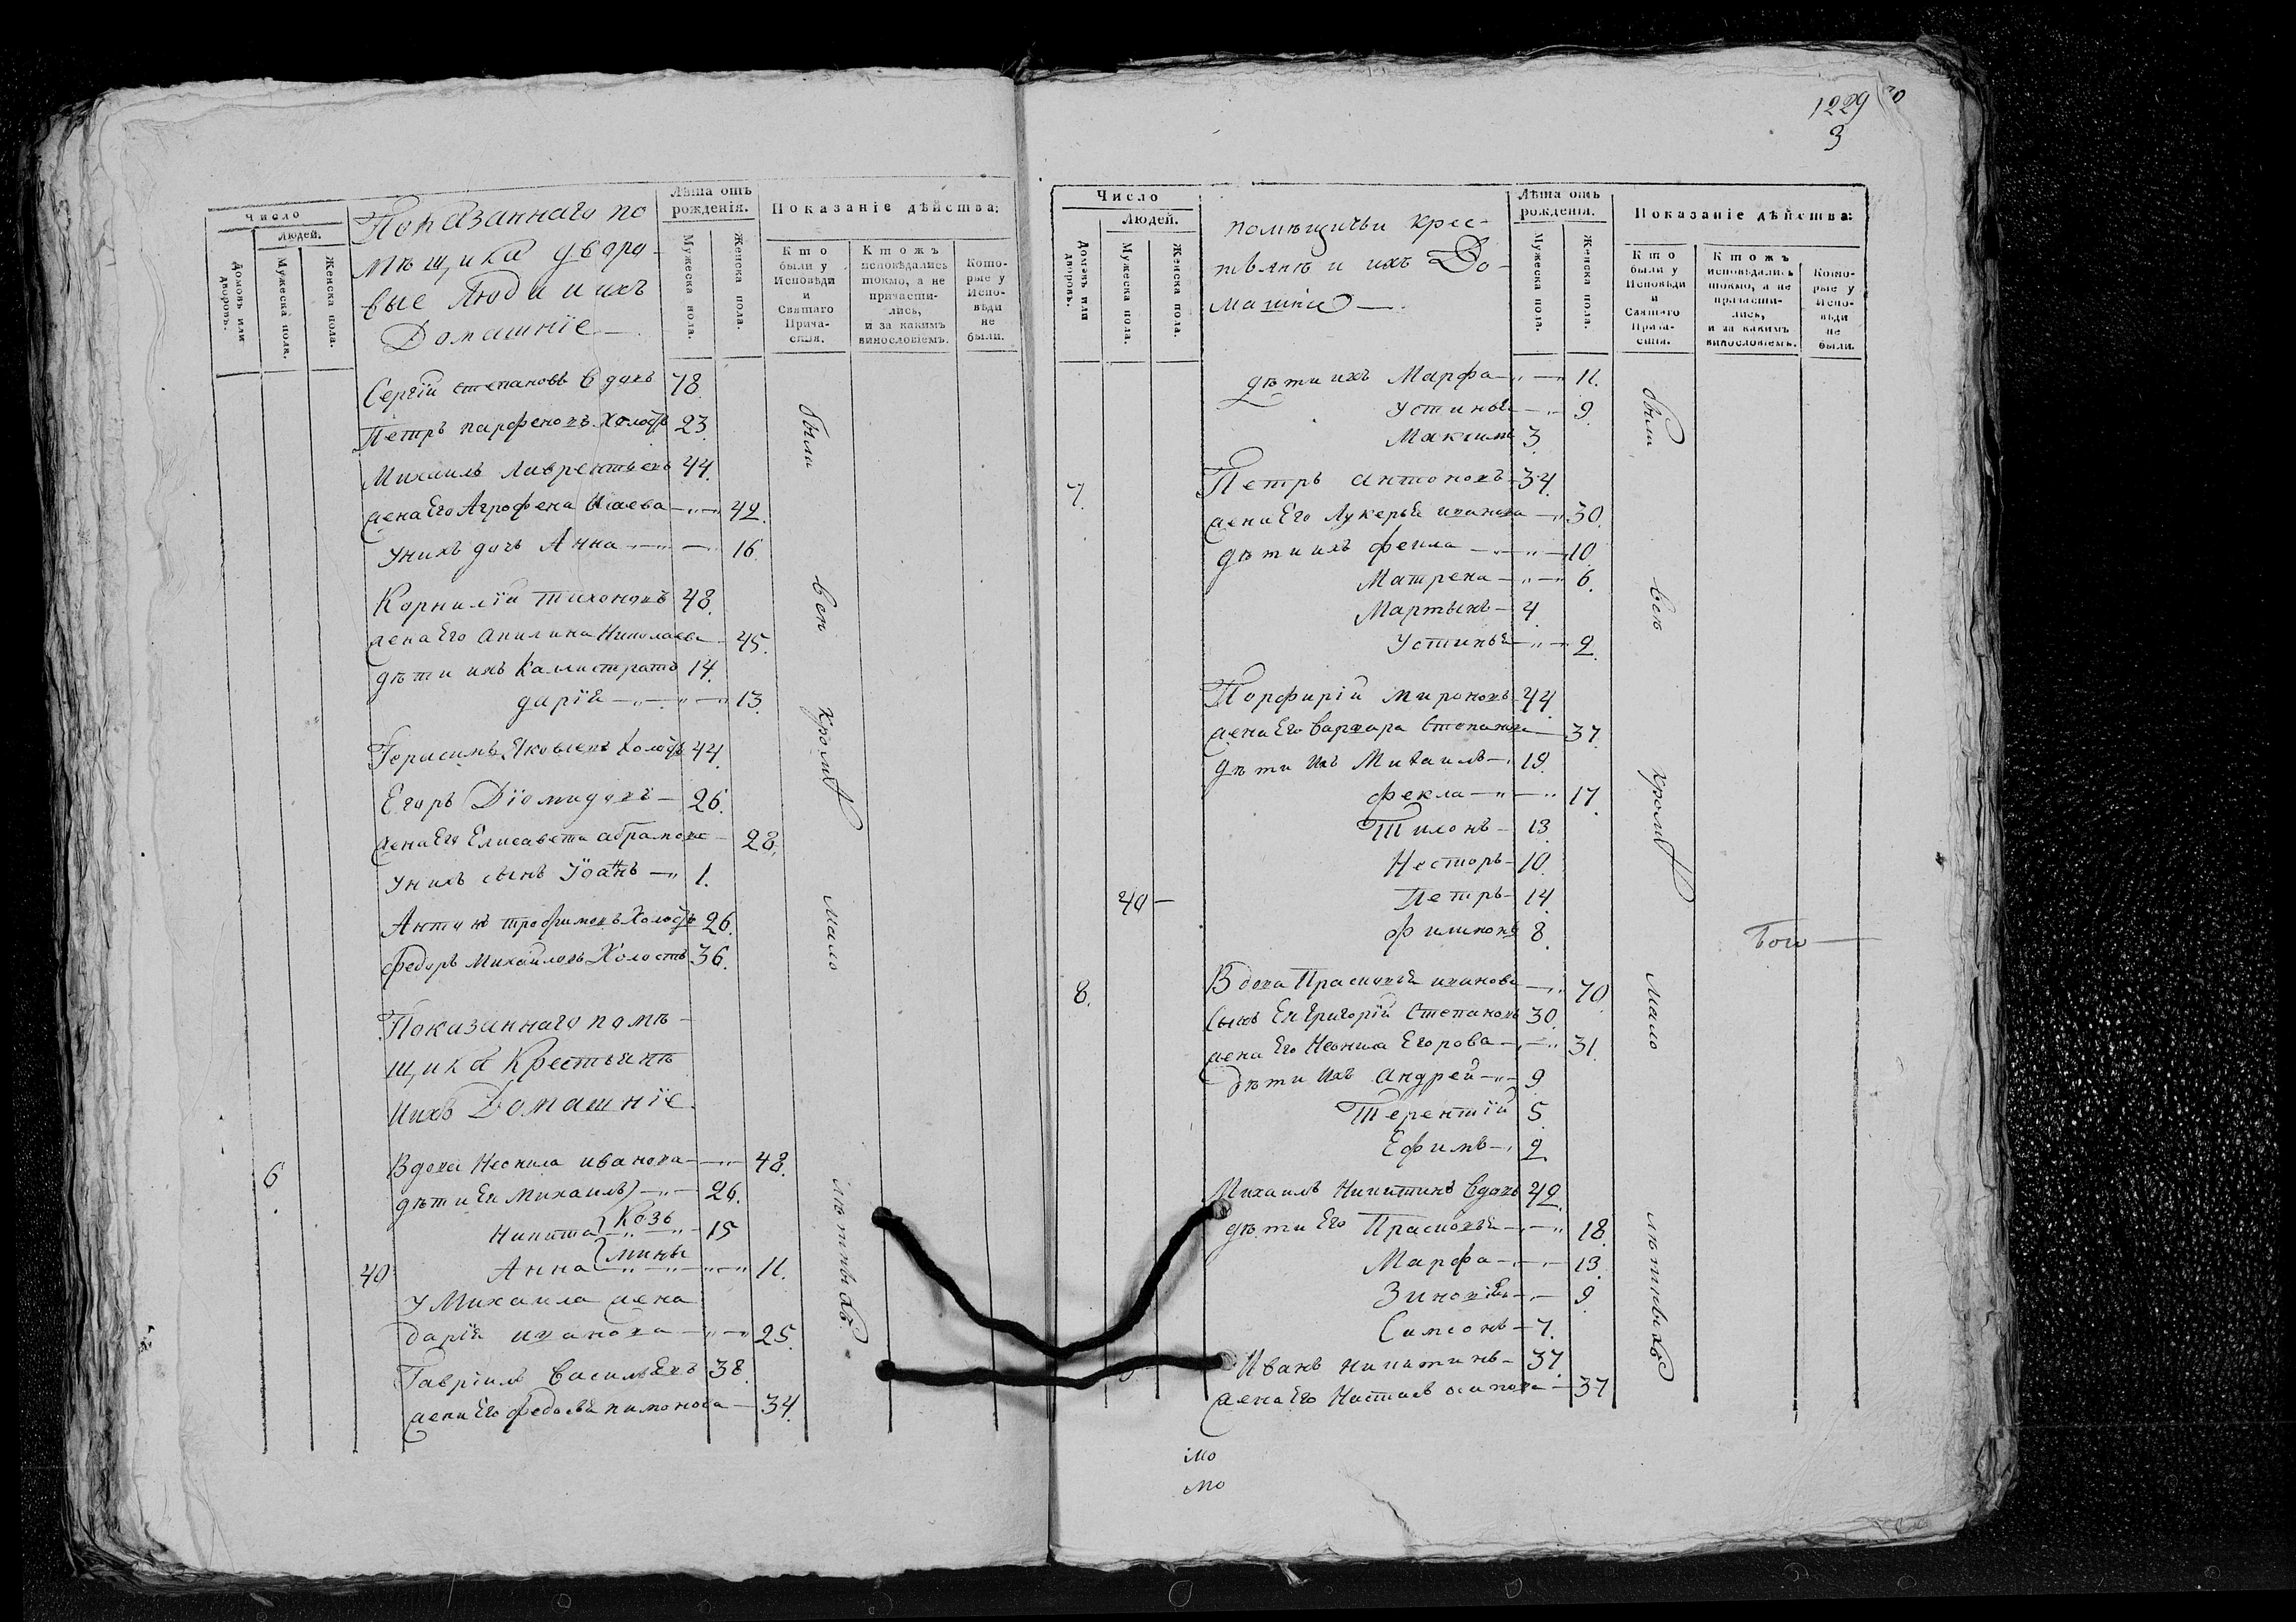 Число
Людей.
Домовъ или дворовъ.
Мужеска пола.
Женска пола.
Показаннаго по
мѣщика дворо
вые Люди и ихъ
Домашніе
Лѣта отъ рожденія.
Мужеска пола.
Женска пола.
Показаніе дѣйства:
Кто были у Исповѣди и Святаго Прича-стія.
Ктожъ исповѣдались токмо, а не причасти-лись, и за какимъ винословіемъ.
Кото-рые у Испо-вѣди не были.
Сергій Степановъ вдовъ 78.
Петръ парфеновъ холостъ 23.
Михаилъ Лаврентьевъ 44.
жена Его Агрофена Исаева 42.
у нихъ дочь Анна 16.
Корнилій тихоновъ 48.
жена Его Акилина Николаева 45.
дѣти ихъ Калистратъ 14.
дарія 13.
Герасимъ Яковлевъ холостъ 44.
Егоръ Діомидовъ 26.
жена Его Елисавета абрамова 28.
у нихъ сынъ Іоаннъ 1.
Антонъ трофимовъ холостъ 26.
федоръ Михайловъ Холостъ 36.
Показаннаго помѣ-
щика Крестьянѣ
и ихъ Домашніе
6. Вдова Неонила иванова 48.
дѣти Ея Михаилъ 26.
Никита 15
Козь
мины
40 Анна 11.
у Михаила жена
дарія иванова 25.
Гавріилъ Васильевъ 38.
жена Его федосья пимонова 34.
были всѣ кромѣ мало лѣтныхъ
1229
3
Число
Людей.
Домовъ или дворовъ.
Мужеска пола.
Женска пола.
помѣщичьи крес-
тьянѣ и ихъ До-
машніе
Лѣта отъ рожденія.
Мужеска пола.
Женска пола.
Показаніе дѣйства:
Кто были у Исповѣди и Святаго Прича-стія.
Ктожъ исповѣдались токмо, а не причасти-лись, и за какимъ винословіемъ.
Кото-рые у Испо-вѣди не были.
дѣти ихъ Марфа 11.
Устинья 9.
Максимъ 3.
7. Петръ антоновъ 34.
жена Его Лукерья иванова 30.
дѣти ихъ фекла 10.
Матрена 6.
Мартынъ 4.
Устинья 2.
Порфирій мироновъ 44.
жена Его Варвара Степанова 37.
дѣти ихъ Михаилъ 19.
фекла 17.
Тихонъ 13.
Несторъ 10.
40 Петръ 14.
филимонъ 8.
8. Вдова Прасковья иванова 70.
Сынъ Ея Григорій Степановъ 30.
жена Его Неонила Егорова 31.
дѣти ихъ Андрей 9
Терентій 5.
Ефимъ 2.
Михаилъ Никитинъ вдовъ 42.
дѣти Его Прасковья 18.
Марфа 13.
Зиновія 9.
Симеонъ 7.
Иванъ Никитинъ 37.
жена Его Настасья осипова 37
были всѣ кромѣ мало лѣтныхъ
мо
мо